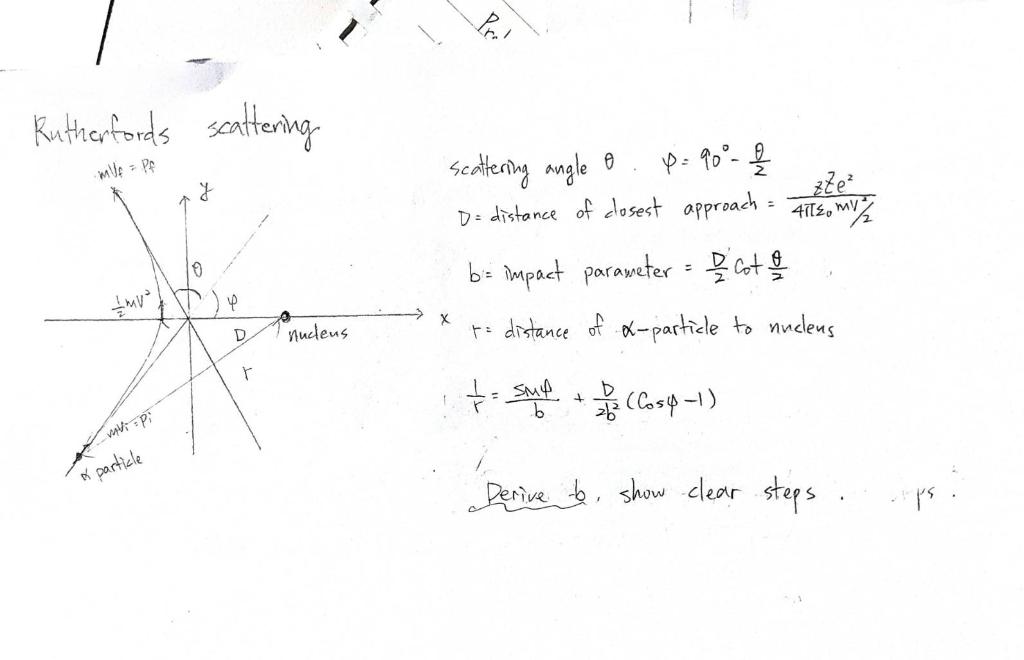 Rutherfords scattering
mVf = Pf
y
θ
φ
½mV²
x
D
nucleus
r
mVi = Pi
α particle
scattering angle θ. φ = 90° - θ/2
D = distance of closest approach = zZe²/(4πε₀ mV²/2)
b = impact parameter = D/2 Cot θ/2
r = distance of α-particle to nucleus
1/r = sinφ/b + D/2b² (Cosφ - 1)
Derive b, show clear steps.